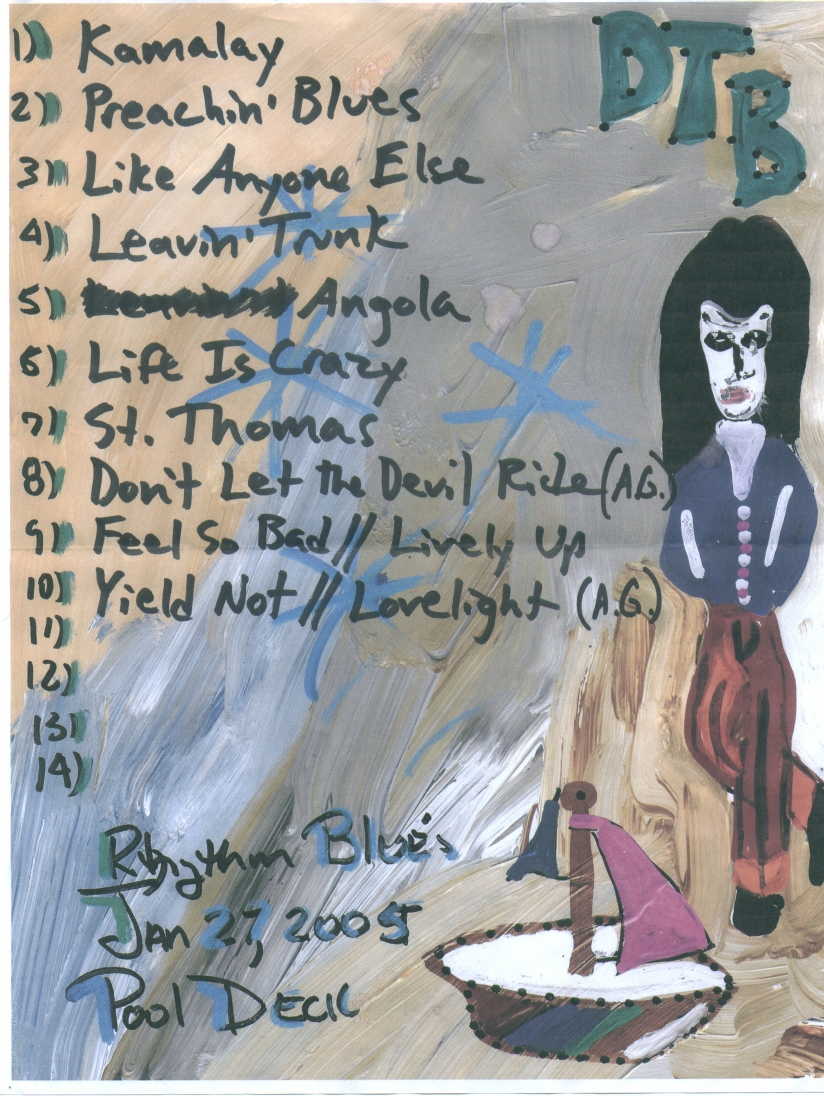 DTB
1) Kamalay
2) Preachin' Blues
3) Like Anyone Else
4) Leavin' Trunk
5) Angola
6) Life Is Crazy
7) St. Thomas
8) Don't Let the Devil Ride (A.G.)
9) Feel So Bad // Lively Up
10) Yield Not // Lovelight (A.G.)
11)
12)
13)
14)
Rhythm Blues
Jan 27, 2005
Pool Deck